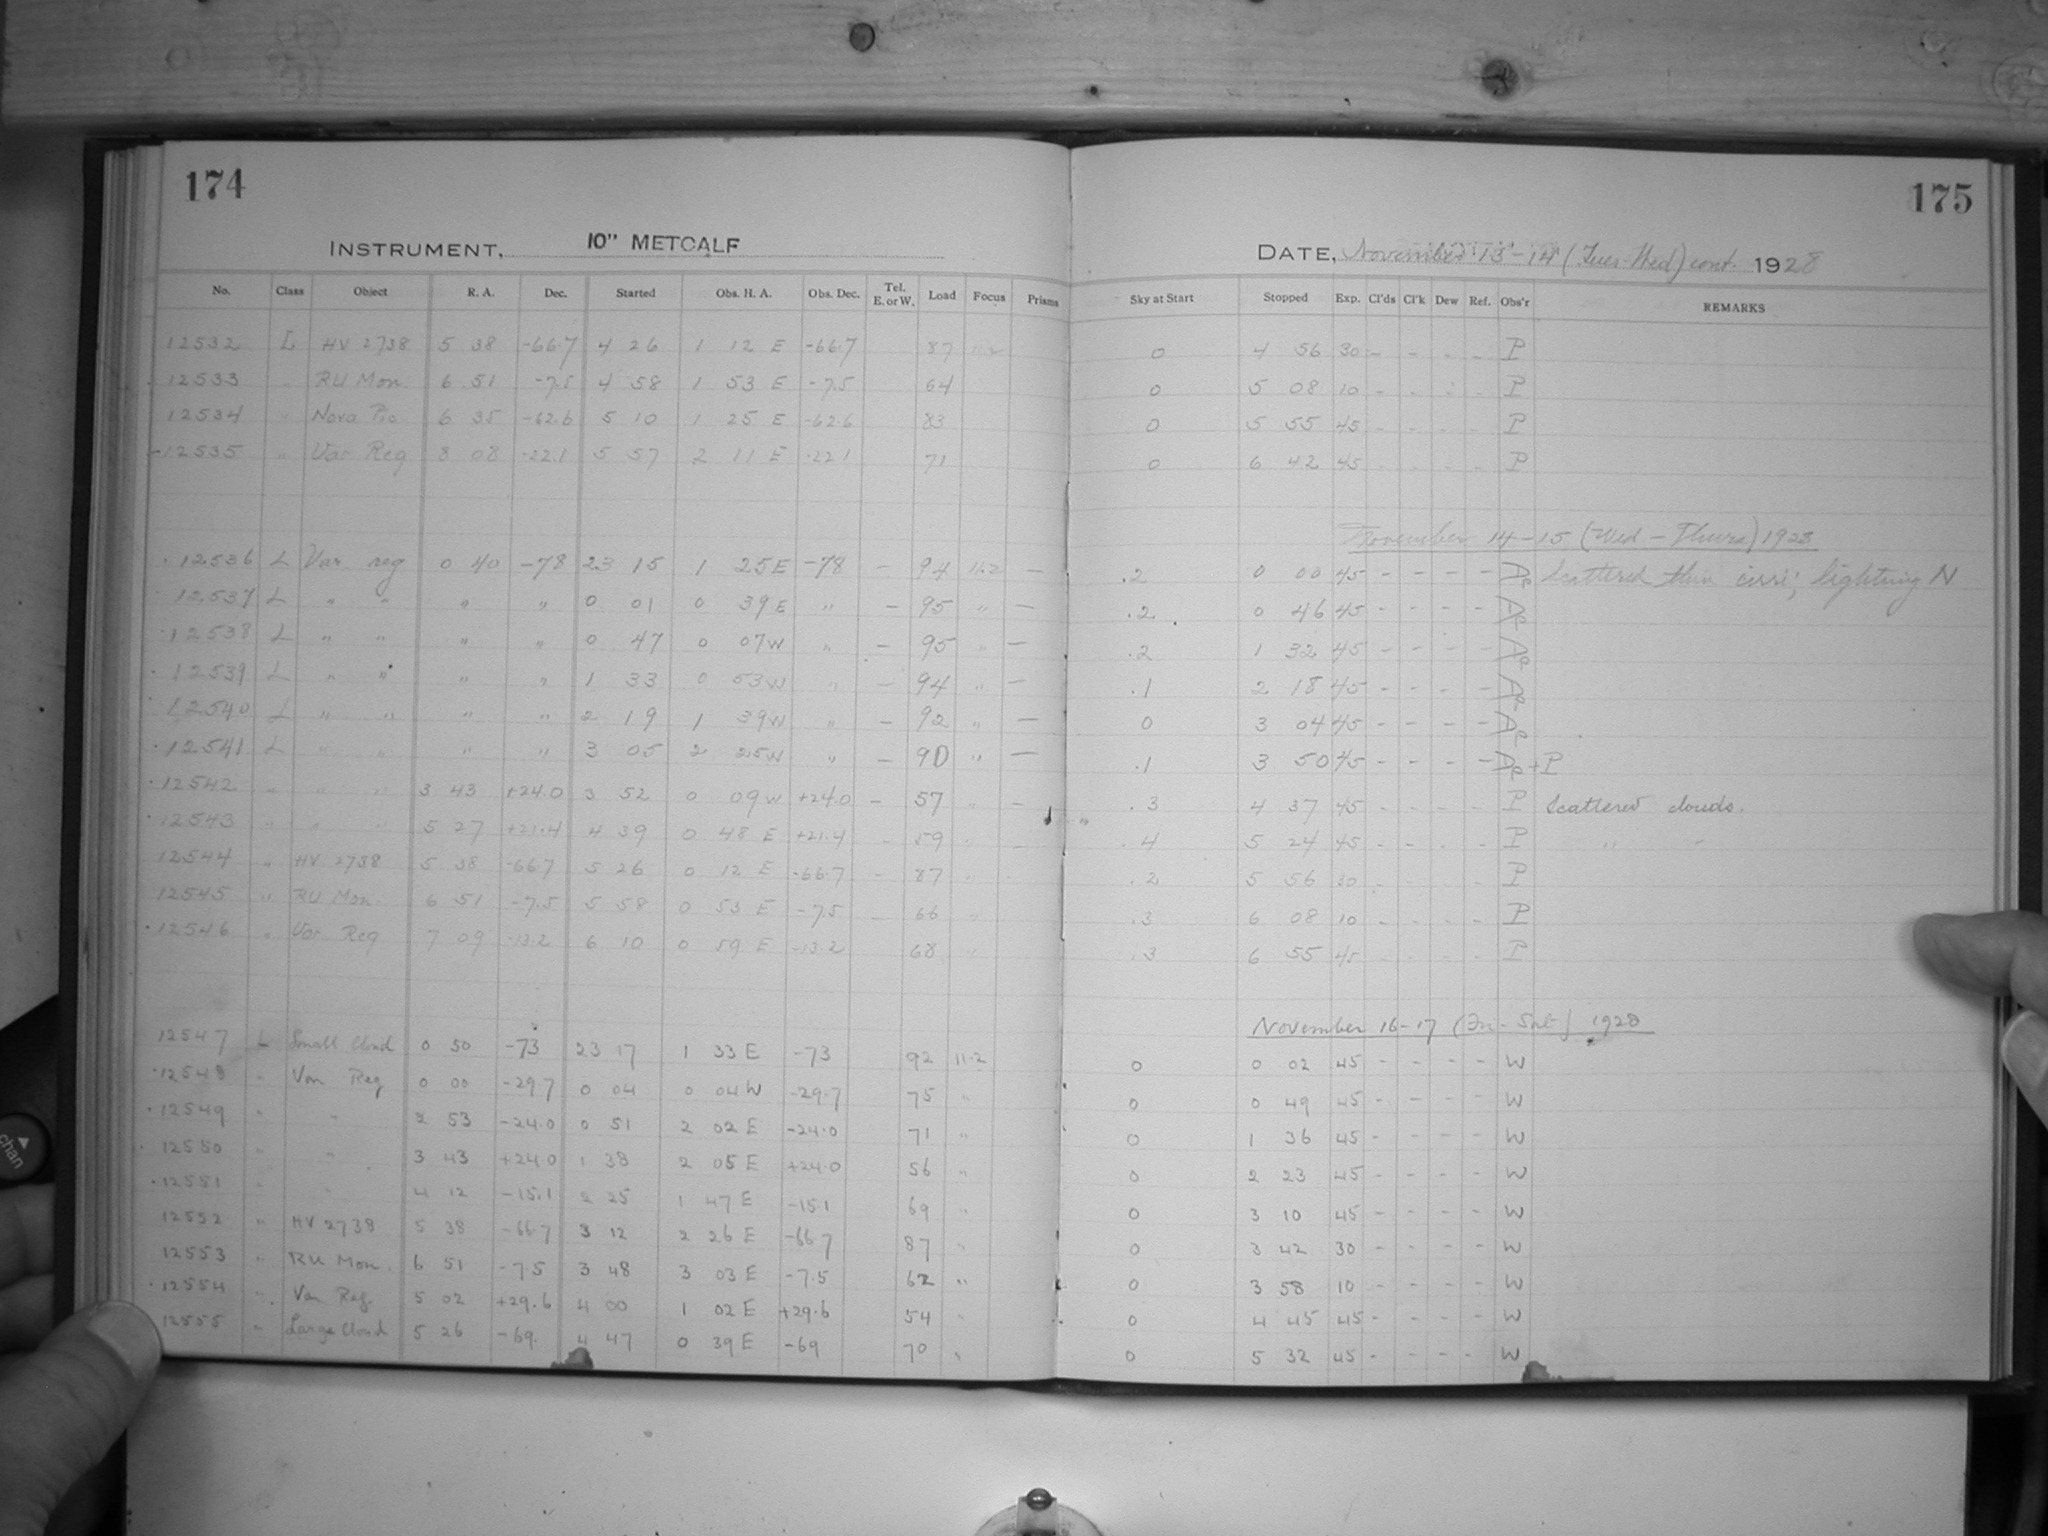 174
175
INSTRUMENT, 10" METCALF
DATE, November 13-14 (Tues-Wed) cont. 1928
No. Class Object R. A. Dec. Started Obs. H. A. Obs. Dec. Tel. E. or W. Load Focus Prisms Sky at Start Stopped Exp. Cl'ds Cl'k Dew Ref. Obs'r REMARKS
12532 L HV 2738 5 38 -66.7 4 26 1 12 E -66.7 87 11.2 0 4 56 30 - - - - P
12533 " RU Mon. 6 51 -7.5 4 58 1 53 E -7.5 64 0 5 08 10 - - - - P
12534 " Nova Pic 6 35 -62.6 5 10 1 25 E -62.6 83 0 5 55 45 - - - - P
12535 " Var Reg 8 08 -22.1 5 57 2 11 E -22.1 71 0 6 42 45 - - - - P
November 14-15 (Wed - Thurs) 1928
12536 L Var reg 0 40 -78 23 15 1 25 E -78 - 94 11.2 - .2 0 00 45 - - - - Scattered thin cirri; lightning N
12537 L " " " " 0 01 0 39 E " - 95 " - .2 0 46 45 - - - -
12538 L " " " " 0 47 0 07 W " - 95 " - .2 1 32 45 - - - -
12539 L " " " " 1 33 0 53 W " - 94 " - .1 2 18 45 - - - -
12540 L " " " " 2 19 1 39 W " - 92 " - 0 3 04 45 - - - -
12541 L " " " " 3 05 2 25 W " - 90 " - .1 3 50 45 - - - - + P
12542 " " " 3 43 +24.0 3 52 0 09 W +24.0 - 57 " - .3 4 37 45 - - - - P Scattered clouds.
12543 " " " 5 27 +21.4 4 39 0 48 E +21.4 - 59 " - .4 5 24 45 - - - - P " "
12544 " HV 2738 5 38 -66.7 5 26 0 12 E -66.7 - 87 " - .2 5 56 30 - - - - P
12545 " RU Mon. 6 51 -7.5 5 58 0 53 E -7.5 - 66 " .3 6 08 10 - - - - P
12546 " Var Reg 7 09 -13.2 6 10 0 59 E -13.2 68 " .3 6 55 45 - - - - P
November 16-17 (Fri - Sat) 1928
12547 L Small Cloud 0 50 -73 23 17 1 33 E -73 92 11.2 0 0 02 45 - - - - W
12548 " Var Reg 0 00 -29.7 0 04 0 04 W -29.7 75 " 0 0 49 45 - - - - W
12549 " " 2 53 -24.0 0 51 2 02 E -24.0 71 " 0 1 36 45 - - - - W
12550 " " 3 43 +24.0 1 38 2 05 E +24.0 56 " 0 2 23 45 - - - - W
12551 " " 4 12 -15.1 2 25 1 47 E -15.1 69 " 0 3 10 45 - - - - W
12552 " HV 2738 5 38 -66.7 3 12 2 26 E -66.7 87 " 0 3 42 30 - - - - W
12553 " RU Mon. 6 51 -7.5 3 48 3 03 E -7.5 62 " 0 3 58 10 - - - - W
12554 " Var Reg. 5 02 +29.6 4 00 1 02 E +29.6 54 " 0 4 45 45 - - - - W
12555 " Large Cloud 5 26 -69. 4 47 0 39 E -69 70 " 0 5 32 45 - - - - W
chan